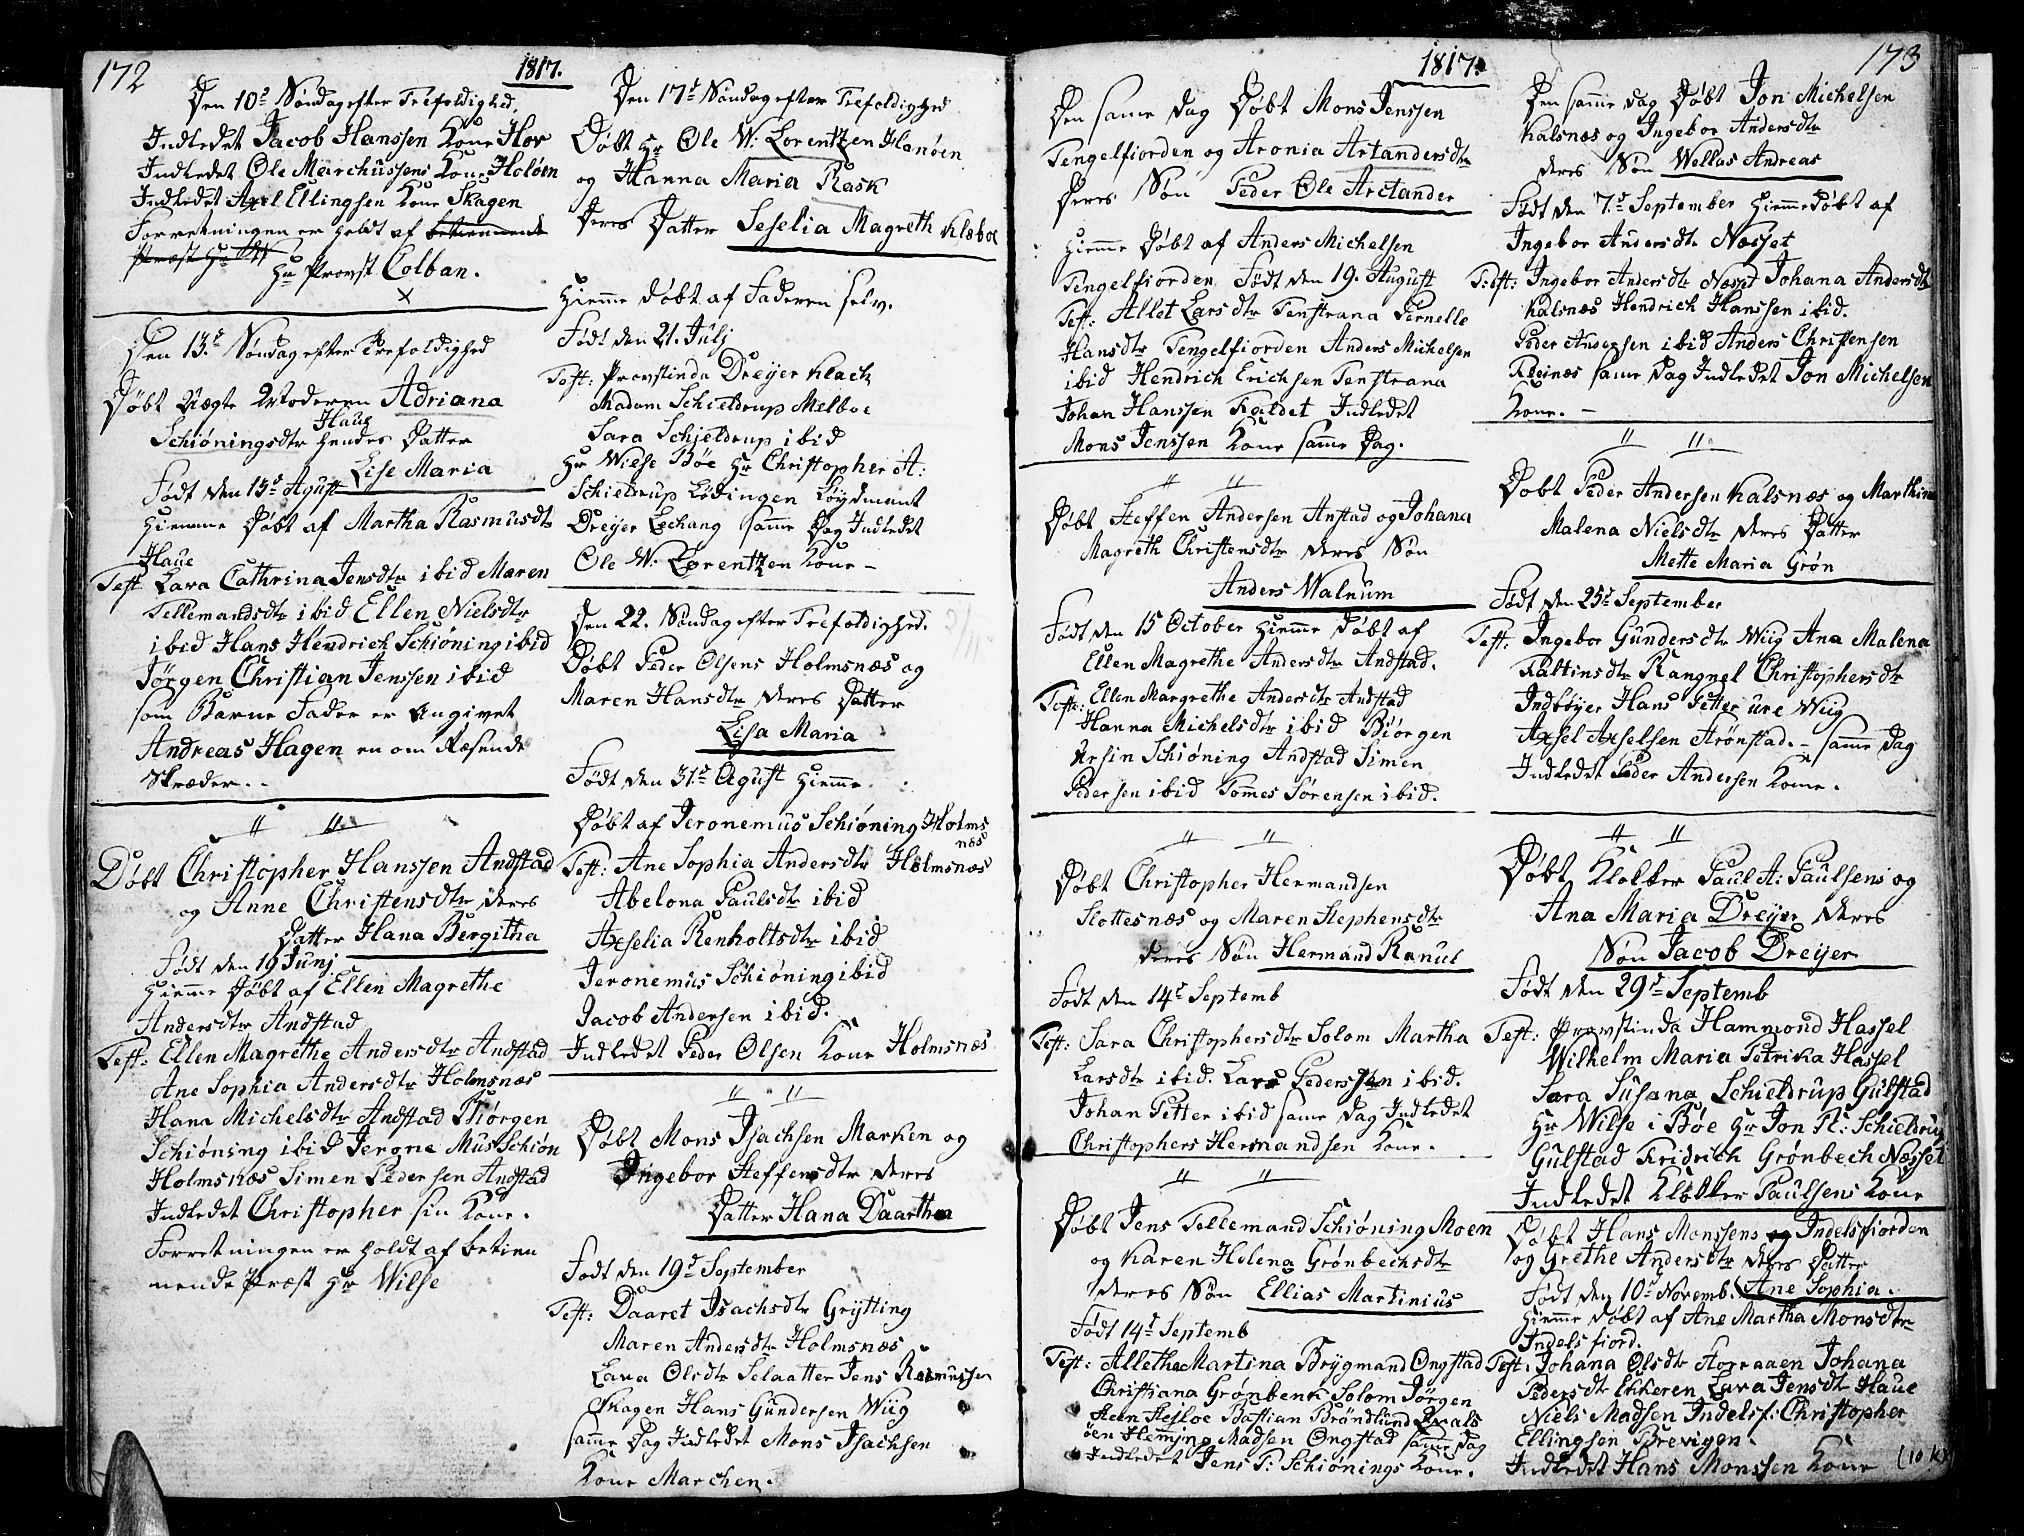 172
1817.
Den 10d Søndag efter Trefoldighed.
Indledet Jacob Hanssen Kone Hov
Indledet Ole Marchussens Kone Holøen
Indledet Axel Ellingsen Kone Skagen
Forretningen er holdt af betiennende
Præst Hr
Hr Provst Colban.
Den 13d Søndag efter Trefoldighed
Døbt Uægte Moderen Adriana
Haug
Schiøningsdtr hendes Datter
Lise Maria
Født den 13d Agust
Hiemme Døbt af Martha Rasmusdtr
Haue
Test Lara Cathrina Jensdtr ibid Maren
Tellemandsdtr ibid Ellen Nielsdtr
ibid Hans Hendrich Schiøning ibid
Jørgen Christian Jenssen ibid
som Barne Fader er Angivet
Andreas Hagen en om Ræsende
Skræder. -
" "
Døbt Christopher Hanssen Andstad
og Anne Christensdtr deres
Datter Hana Bergitha
Født den 19 Junj
Hiemme Døbt af Ellen Magrethe
Andersdtr Andstad
Test: Ellen Magrethe Andersdtr Andstad
Ane Sophia Andersdtr Holmsnæs
Hana Michelsdtr Andstad Biørgen
Schiøning ibid Jerone Mus Schiøn
Holmsnæs Simen Pedersen Andstad
Indledet Christopher sin Kone.
Forretningen er holdt af betien
nende Præst Hr Wilse
Den 17d Søndag efter Trefoldighed
Døbt Hr Ole W: Lorentzen Hanøen
og Hanna Maria Rask
Deres Datter Seselia Magreth Klæboe
Hiemme døbt af Faderen selv.
Født den 21. Julj
Test: Provstinda Dreyer Klack
Madam Schieldrup Melboe
Sara Schjeldrup ibid
Hr Wilse Bøe Hr Christopher A:
Schieldrup Lødingen Løydmant
Dreyer Lechang samme Dag Indledet
Ole W: Lorentzen Kone -
Den 22. Søndag efter Trefoldighed.
Døbt Peder Olsens Holmsnæs og
Maren Hansdtr deres Datter
Lisa Maria
Født den 31d Agust Hiemme
Døbt af Jeronemus Schiøning Holms
næs
Test: Ane Sophia Andersdtr Holmsnæs
Abelona Paulsdtr ibid
Axselia Renholtsdtr ibid
Jeronemus Schiøning ibid
Jacob Andersen ibid.
Indledet Peder Olsen Kone Holmsnæs
" "
Døbt Mons Jsachsen Marken og
Ingebor Steffensdtr deres
Datter Hana Daarthea
Født den 19d September
Test: Daaret Isachsdtr Grytting
Maren Andersdtr Holmsnæs
Lana Olsdtr Selaatter Jens Rasmussen
Skagen Hans Gundersen Wiig
samme Dag Indledet Mons Jsachsen
Kone Marchen.
1817.
173
Den samme Dag Døbt Mons Jenssen
Tengelfiorden og Aronia Artandersdtr
Deres Søn Peder Ole Arctander
Hiemme Døbt af Anders Michelsen
Tengelfiorden Født den 19. August
Test: Allet Larsdtr Tenstrana Pernelle
Hansdtr Tengelfiorden Anders Michelsen
ibid Hendrich Erichsen Tenstrana
Johan Hanssen Indledet
Mons Jenssen Kone samme Dag.
" "
Døbt Steffen Andersen Anstad og Johana
Magreth Christensdtr deres Søn
Anders Walnum
Født den 15 October Hiemme Døbt af
Ellen Magrethe Andersdtr Andstad.
Test: Ellen Margrethe Andersdtr Andstad
Hanna Michelsdtr ibid Biørgen
Ursin Schiøning Andstad Simen
Pedersen ibid Tommes Sørensen ibid.
" "
Døbt Christopher Hermandsen
Slottesnæs og Maren Stephensdtr
deres Søn Hermand Ranus
Født den 14d Septemb
Test: Sara Christophersdtr Solom Martha
Larsdtr ibid. Lars Pederssen ibid.
Johan Petter ibid samme Dag Indledet
Christophers Hermandsen Kone.
" "
Døbt Jens Tellemand Schiøning Moen
og Karen Helena Grønbechsdtr
deres Søn Ellias Martinius
Født 14d Septemb
Test: Allethe Martina Brygmand Ongstad
Christiana Grønbenk Solom Jørgen
Steen Hejloe Bastian Brøndlund Qvals
øen Hemming Madsen Ongstad samme Dag
Indledet Jens T: Schiønings Kone.
Den samme Dag Døbt Jon Michelsen
Kalsnæs og Ingebor Andersdtr
deres Søn Wellas Andreas
Født den 7d September Hiemme Døbt af
Ingebor Andersdtr Næsset
Test: Ingebor Andersdtr Næsset Johana Andersdtr
Kalsnæs Hendrich Hanssen ibid.
Peder Andersen ibid Anders Christensen
Fleinæs samme Dag Indledet Jon Michelsen
Kone. -
" "
Døbt Peder Andersen Kalsnæs og Marthina
Malena Nielsdtr deres Datter
Mette Maria Grøn
Født den 25d September
Test: Ingebor Gundersdtr Wiig Ana Malena
Faltinsdtr Rangnel Christophersdtr
Indbøjer Hans Petter ure Wiig
Axsel Axselsen Frønstad. - samme Dag
Indledet Peder Andersen Kone.
" "
Døbt Klokker Paul A: Paulsens og
Ana Maria Dreyer deres
Søn Jacob Dreyer
Født den 29d Septemb
Test: Provstinda Hammond Hassel
Wilhelm Maria Petrika Hassel
Sara Susana Schieldrup Gulstad
Hr Wilse i Bøe Hr Jon Pl: Schieldrup
Gulstad Fridrich Grønbech Næsset
Indledet Klokker Paulsens Kone
Døbt Hans Monssens og Indelsfiorden
og Grethe Andersdtr deres Datter
Født den 10d Novemb. Ane Sophia.
Hiemme Døbt af Ane Martha Monsdtr
Indelsfiord.
Test: Johana Olsdtr Horraaen Johana
Pedersdtr Ekkeren Lava Jensdtr Haue
Niels Madsen Indelsf: Christopher
Ellingsen Brevigen.
Indledet Hans Monssen Kone (10 K)